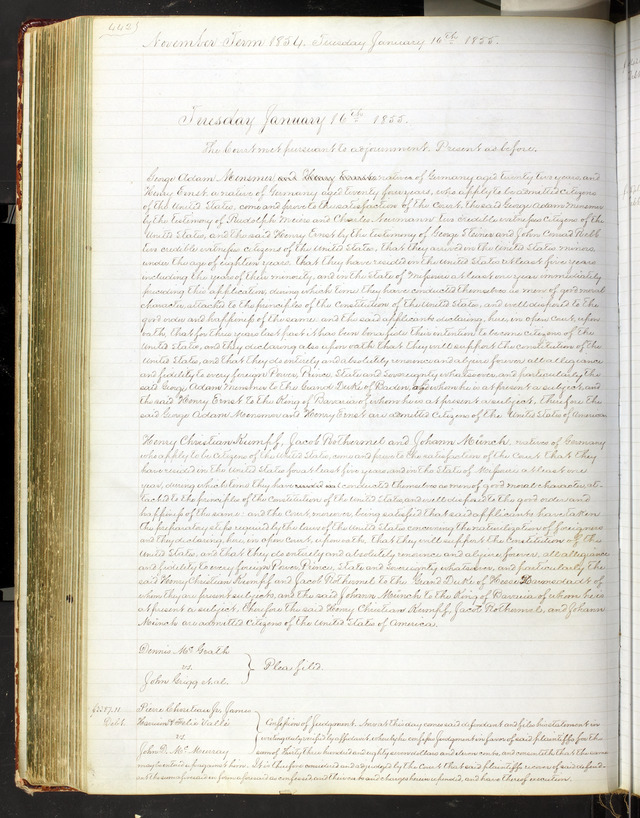 442
November Term 1854. Tuesday January 16th 1855.
Tuesday January 16th 1855.
The Court met pursuant to adjournment. Present as before.
George Adam Monsmer and Henry natives of Germany aged twenty five years, and
Henry Ernst a native of Germany aged twenty four years, who apply to be admitted citizens
of the United States, come and prove to the satisfaction of the Court, the said George Adam Monsmer
by the testimony of Rudolph and Charles Neumann two credible witnesses citizens of the
United States, and the said Henry Ernst by the testimony of George and John Conrad
two credible witnesses citizens of the United States, that they arrived in the United States minors
under the age of eighteen years, that they have resided in the United States at least five years
including the years of their minority, and in the State of Missouri at least one year immediately
preceding this application, during which time they have conducted themselves as men of good moral
character, attached to the principles of the Constitution of the United States, and well disposed to the
good order and happiness of the same: and the said applicants declaring, here, in open Court, upon
oath, that for three years last past it has been bona fide their intention to become citizens of the
United States, and they declaring also upon oath that they will support the constitution of the
United States, and that they do entirely and absolutely renounce and abjure forever all allegiance
and fidelity to every foreign Power, Prince, State and Sovereignty whatsoever, and particularly the
said George Adam Monsmer to the Grand Duke of Baden, of whom he is at present a subject, and
the said Henry Ernst to the King of Bavaria of whom he is at present a subject, therefore the
said George Adam Monsmer and Henry Ernst are admitted Citizens of the United States of America.
Henry Christian Rumpff, Jacob Rothermel and Johann Münch, natives of Germany
who apply to be Citizens of the United States, come and prove to the satisfaction of the Court that they
have resided in the United States for at least five years and in the State of Missouri at least one
year, during which time they have conducted themselves as men of good moral character, at-
tached to the principles of the Constitution of the United States, and well disposed to the good order and
happiness of the same: and the Court, moreover, being satisfied that said applicants have taken
the preparatory steps required by the laws of the United States concerning the naturalization of foreigners
and they declaring, here, in open Court, upon oath, that they will support the Constitution of the
United States, and that they do entirely and absolutely renounce and abjure forever, all allegiance
and fidelity to every foreign Power, Prince, State and Sovereignty whatsoever, and particularly the
said Henry Christian Rumpff and Jacob Rothermel to the Grand Duke of Hesse Darmstadt of
whom they are present subjects, and the said Johann Münch to the King of Bavaria of whom he is
at present a subject. Therefore the said Henry Christian Rumpff, Jacob Rothermel, and Johann
Münch are admitted Citizens of the United States of America.
Dennis McGrath
vs.
John Grigg et al.
Plea filed.
$3387.11
Debt
Pierre Chouteau Jr. James
Harrison & Felix Valle
vs
John D. McMurray
Confession of Judgment. Now at this day comes said defendant and files his statement in
writing duly verified by affidavit whereby he confesses Judgment in favor of said plaintiffs for the
sum of Thirty three hundred and eighty seven dollars and eleven cents, and consents that the same
may be entered up against him. It is therefore considered and adjudged by the Court that said plaintiffs recover of said defend-
ant the sum aforesaid in form aforesaid as confessed, and their costs and charges herein expended, and have thereof execution.